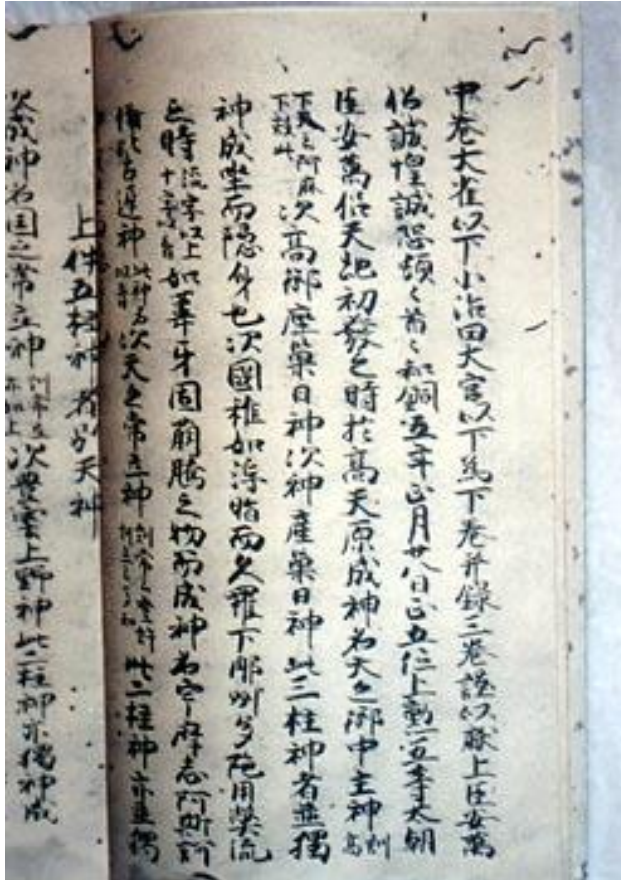 中巻大雀以下小治田大宮以下為下巻并録三巻謹以献上臣安萬
侶誠惶誠恐頓々首々和銅五年正月廿八日正五位上勲五等太朝
臣安萬侶天地初發之時於高天原成神名天之御中主神訓高
下天云阿麻下效此次高御産巣日神次神産巣日神此三柱神者並獨
神成坐而隱身也次國稚如浮脂而久羅下那州多陀用弊流
之時流字以上十字以音如葦牙因萌騰之物而成神名宇麻志阿斯訶
備比古遅神此神名以音次天之常立神訓常云登許訓立云多知此二柱神亦並獨
上件五柱神者別天神
次成神名国之常立神訓常立亦如上次豊雲上野神此二柱神亦獨神成